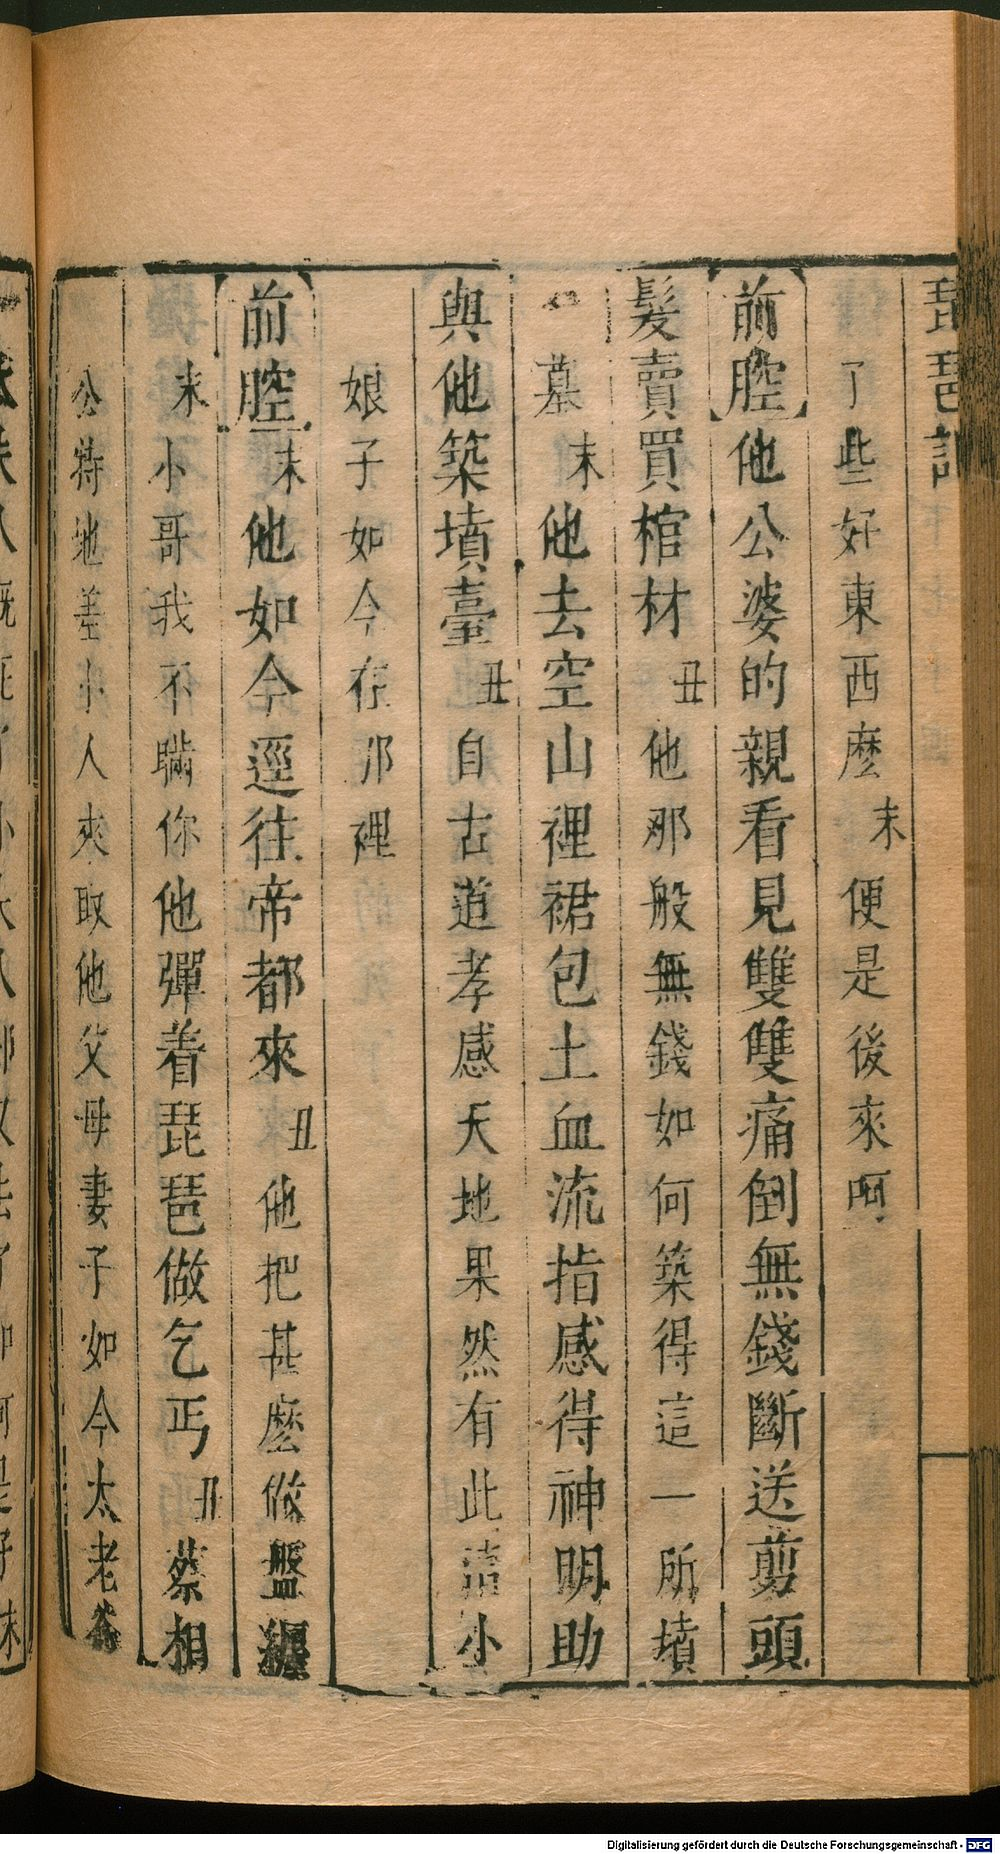 琵琶記
了些好東西麽末便是後來呵
前腔他公婆的親看見雙雙痛倒無錢斷送剪頭
髮賣買棺材丑他那般無錢如何築得這一所墳
墓末他去空山裡裙包土血流指感得神明助
與他築墳臺丑自古道孝感天地果然有此請小
娘子如今在那裡
前腔末他如今逕往帝都來丑他把甚麽做盤纏
末小哥我不瞞你他彈着琵琶做乞丐丑蔡相
公特地差小人來取他父母妻子如今太老爺
Digitalisierung gefördert durch die Deutsche Forschungsgemeinschaft - DFG